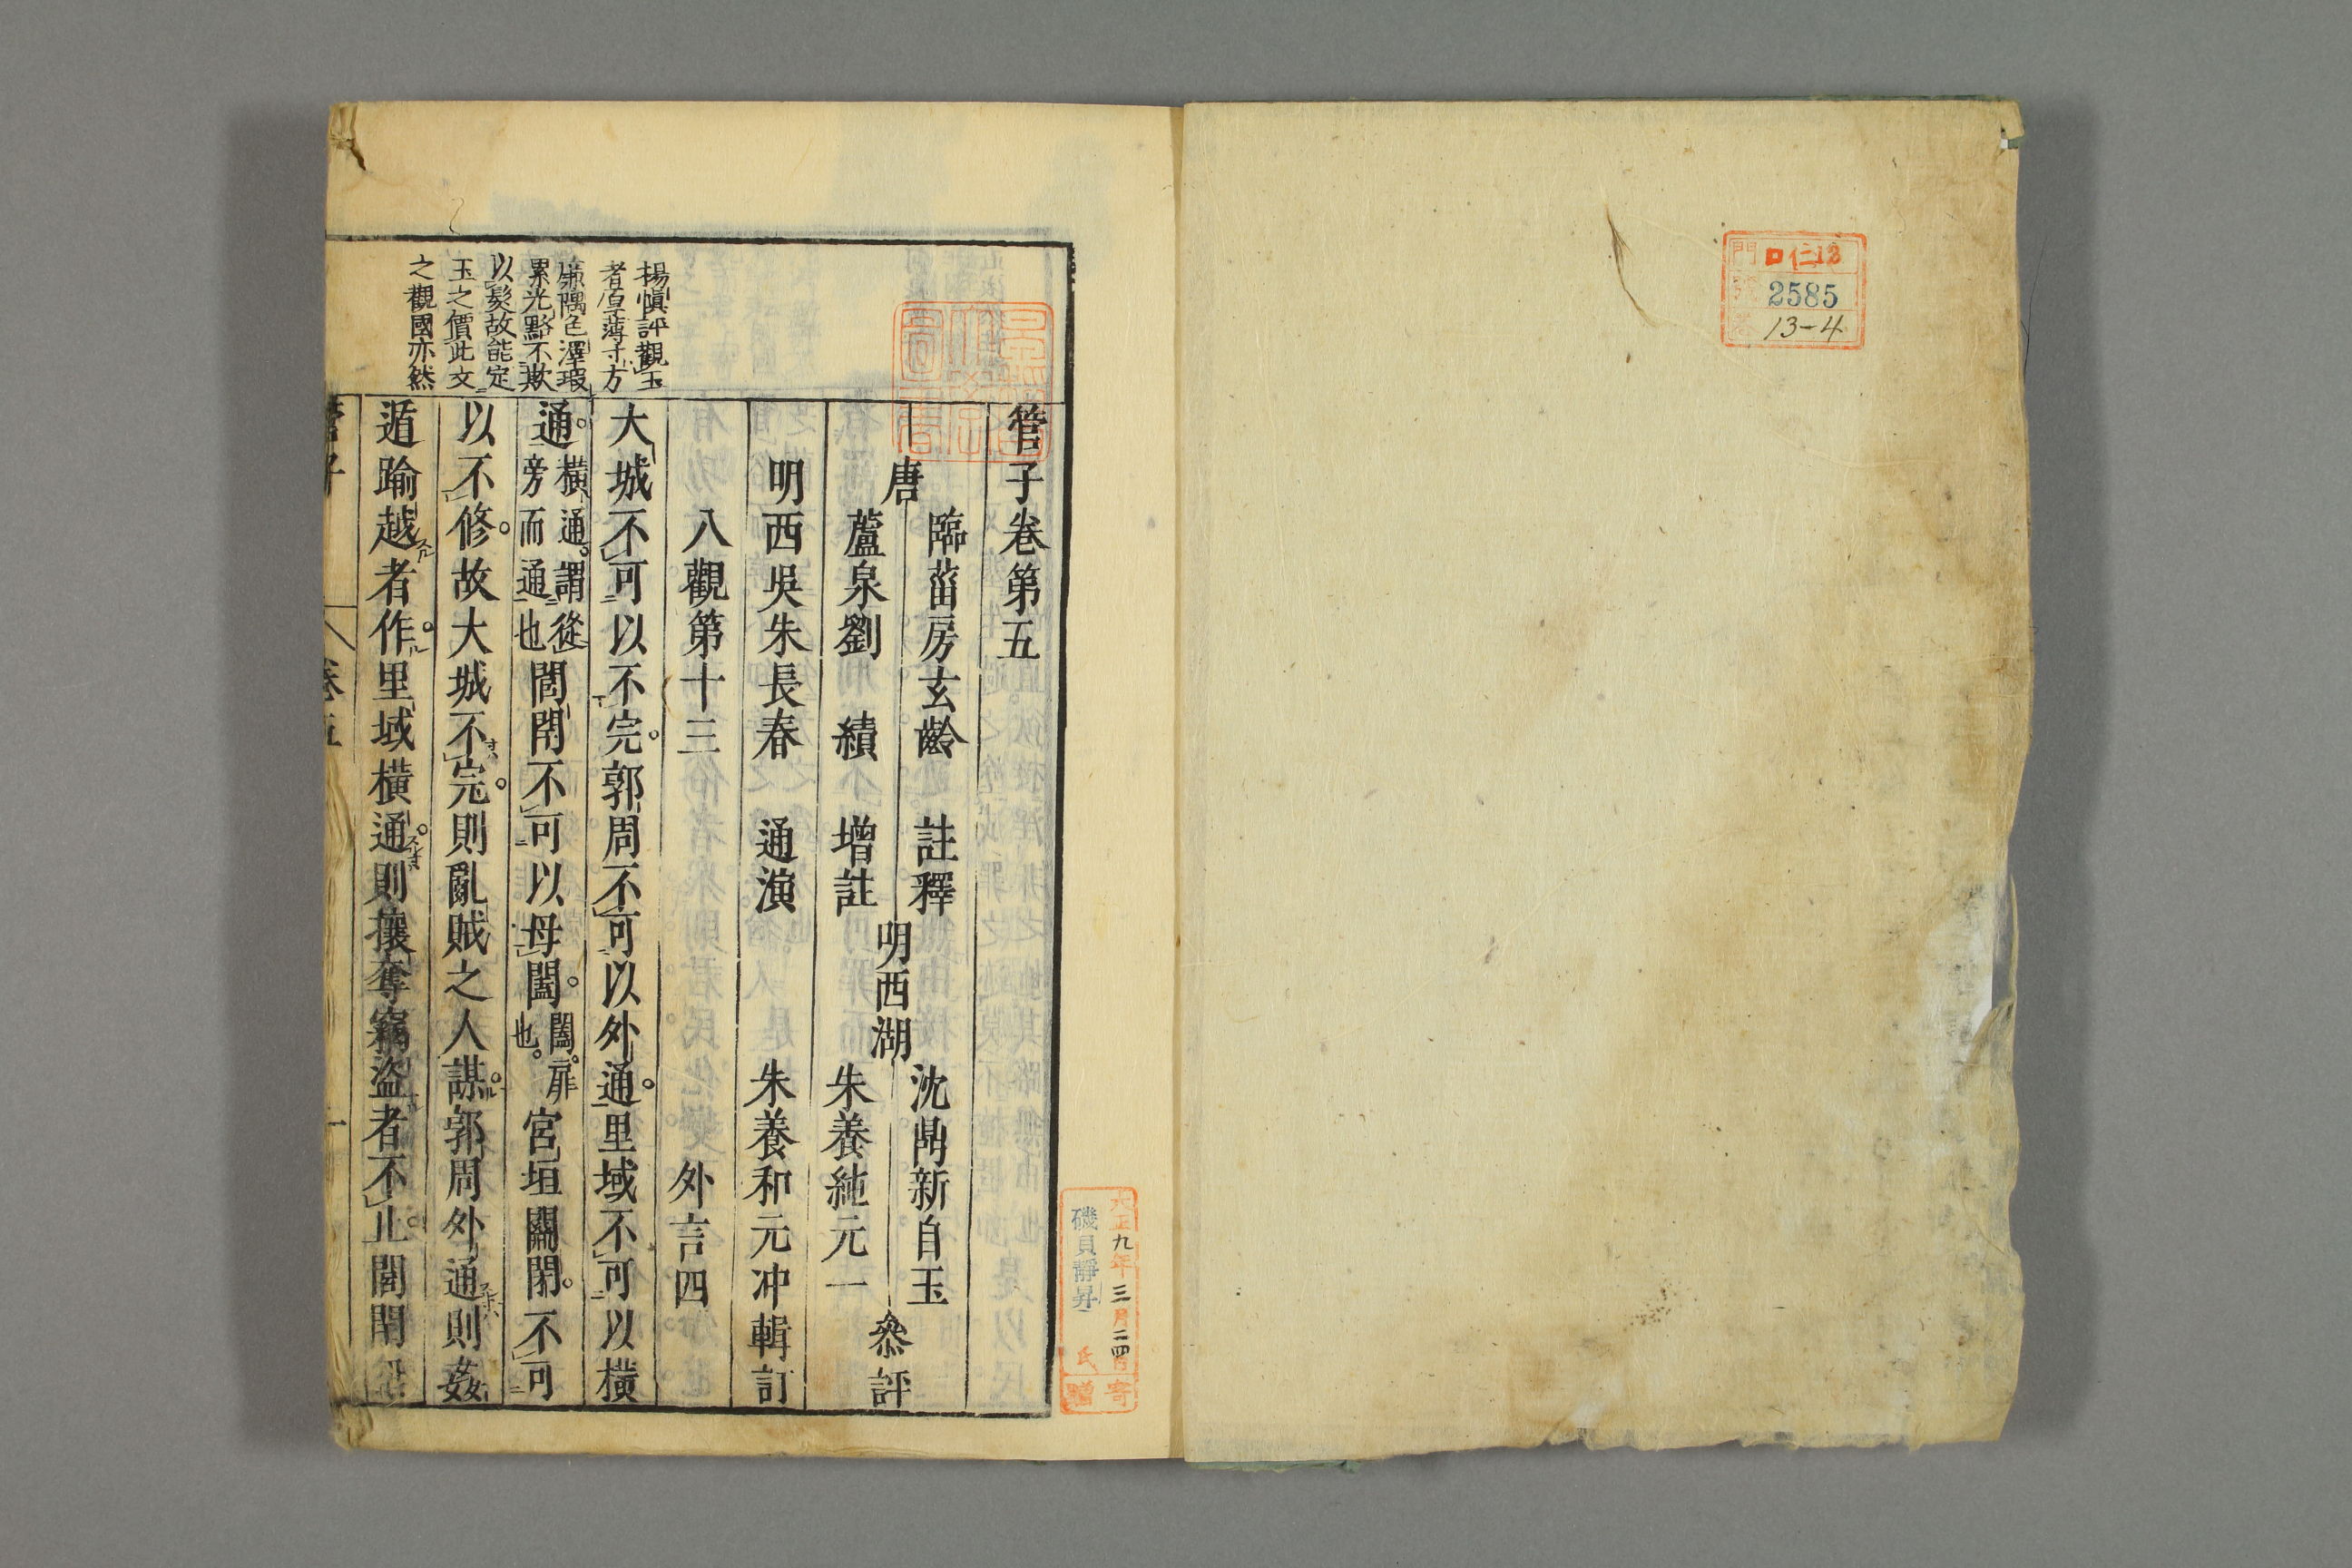 門 口仁12
號 2585
13-4
管子卷第五
唐
臨菑房玄齡 註釋
蘆泉劉 績 增註
明西湖
沈鼎新自玉
朱養純元一
參評
明西吳朱長春 通演
朱養和元冲輯訂
八觀第十三 外言四
大城不可以不完。郭周不可以外通。里域不可以橫
通。橫通。謂從旁而通也閭閈不可以毋闔。闔。扉也。宮垣關閉。不可
以不修。故大城不完。則亂賊之人謀。郭周外通則姦
遁踰越者作。里域橫通。則攘奪竊盜者不止。閭閈
楊愼評觀玉
者厚薄寸方
廉隅色澤瑕
累光黯不欺
以髮故能定
玉之價此文
之觀國亦然
管子
卷五
一
大正九年三月二四日寄
磯貝靜昇氏贈